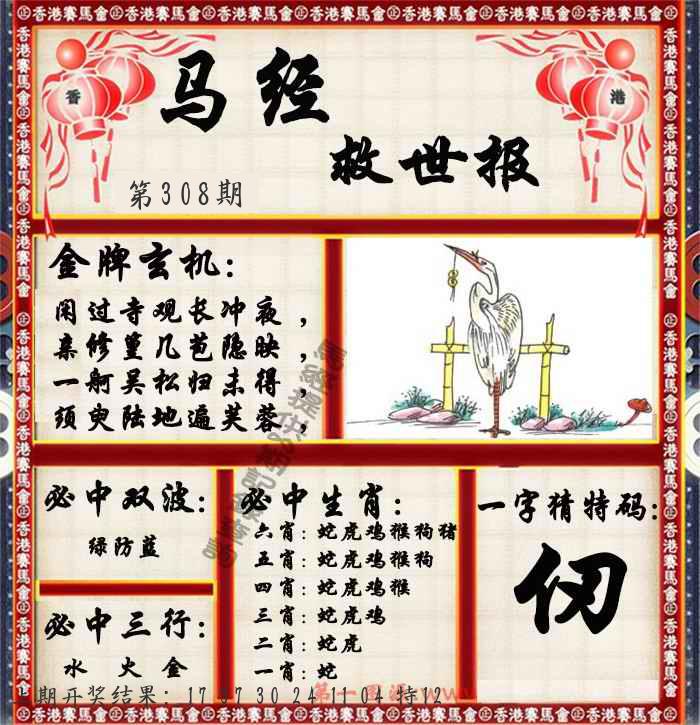 香港賽馬會
香 港
马经
救世报
第308期
金牌玄机:
闲过寺观长冲夜，
亲修篁几苞隐映，
一舸吴松归未得，
须臾陆地遍芙蓉，
必中双波:
绿防蓝
必中三行:
水 火 金
必中生肖:
六肖: 蛇虎鸡猴狗猪
五肖: 蛇虎鸡猴狗
四肖: 蛇虎鸡猴
三肖: 蛇虎鸡
二肖: 蛇虎
一肖: 蛇
一字猜特码:
仞
期开奖结果: 17 37 30 24 11 04 特12